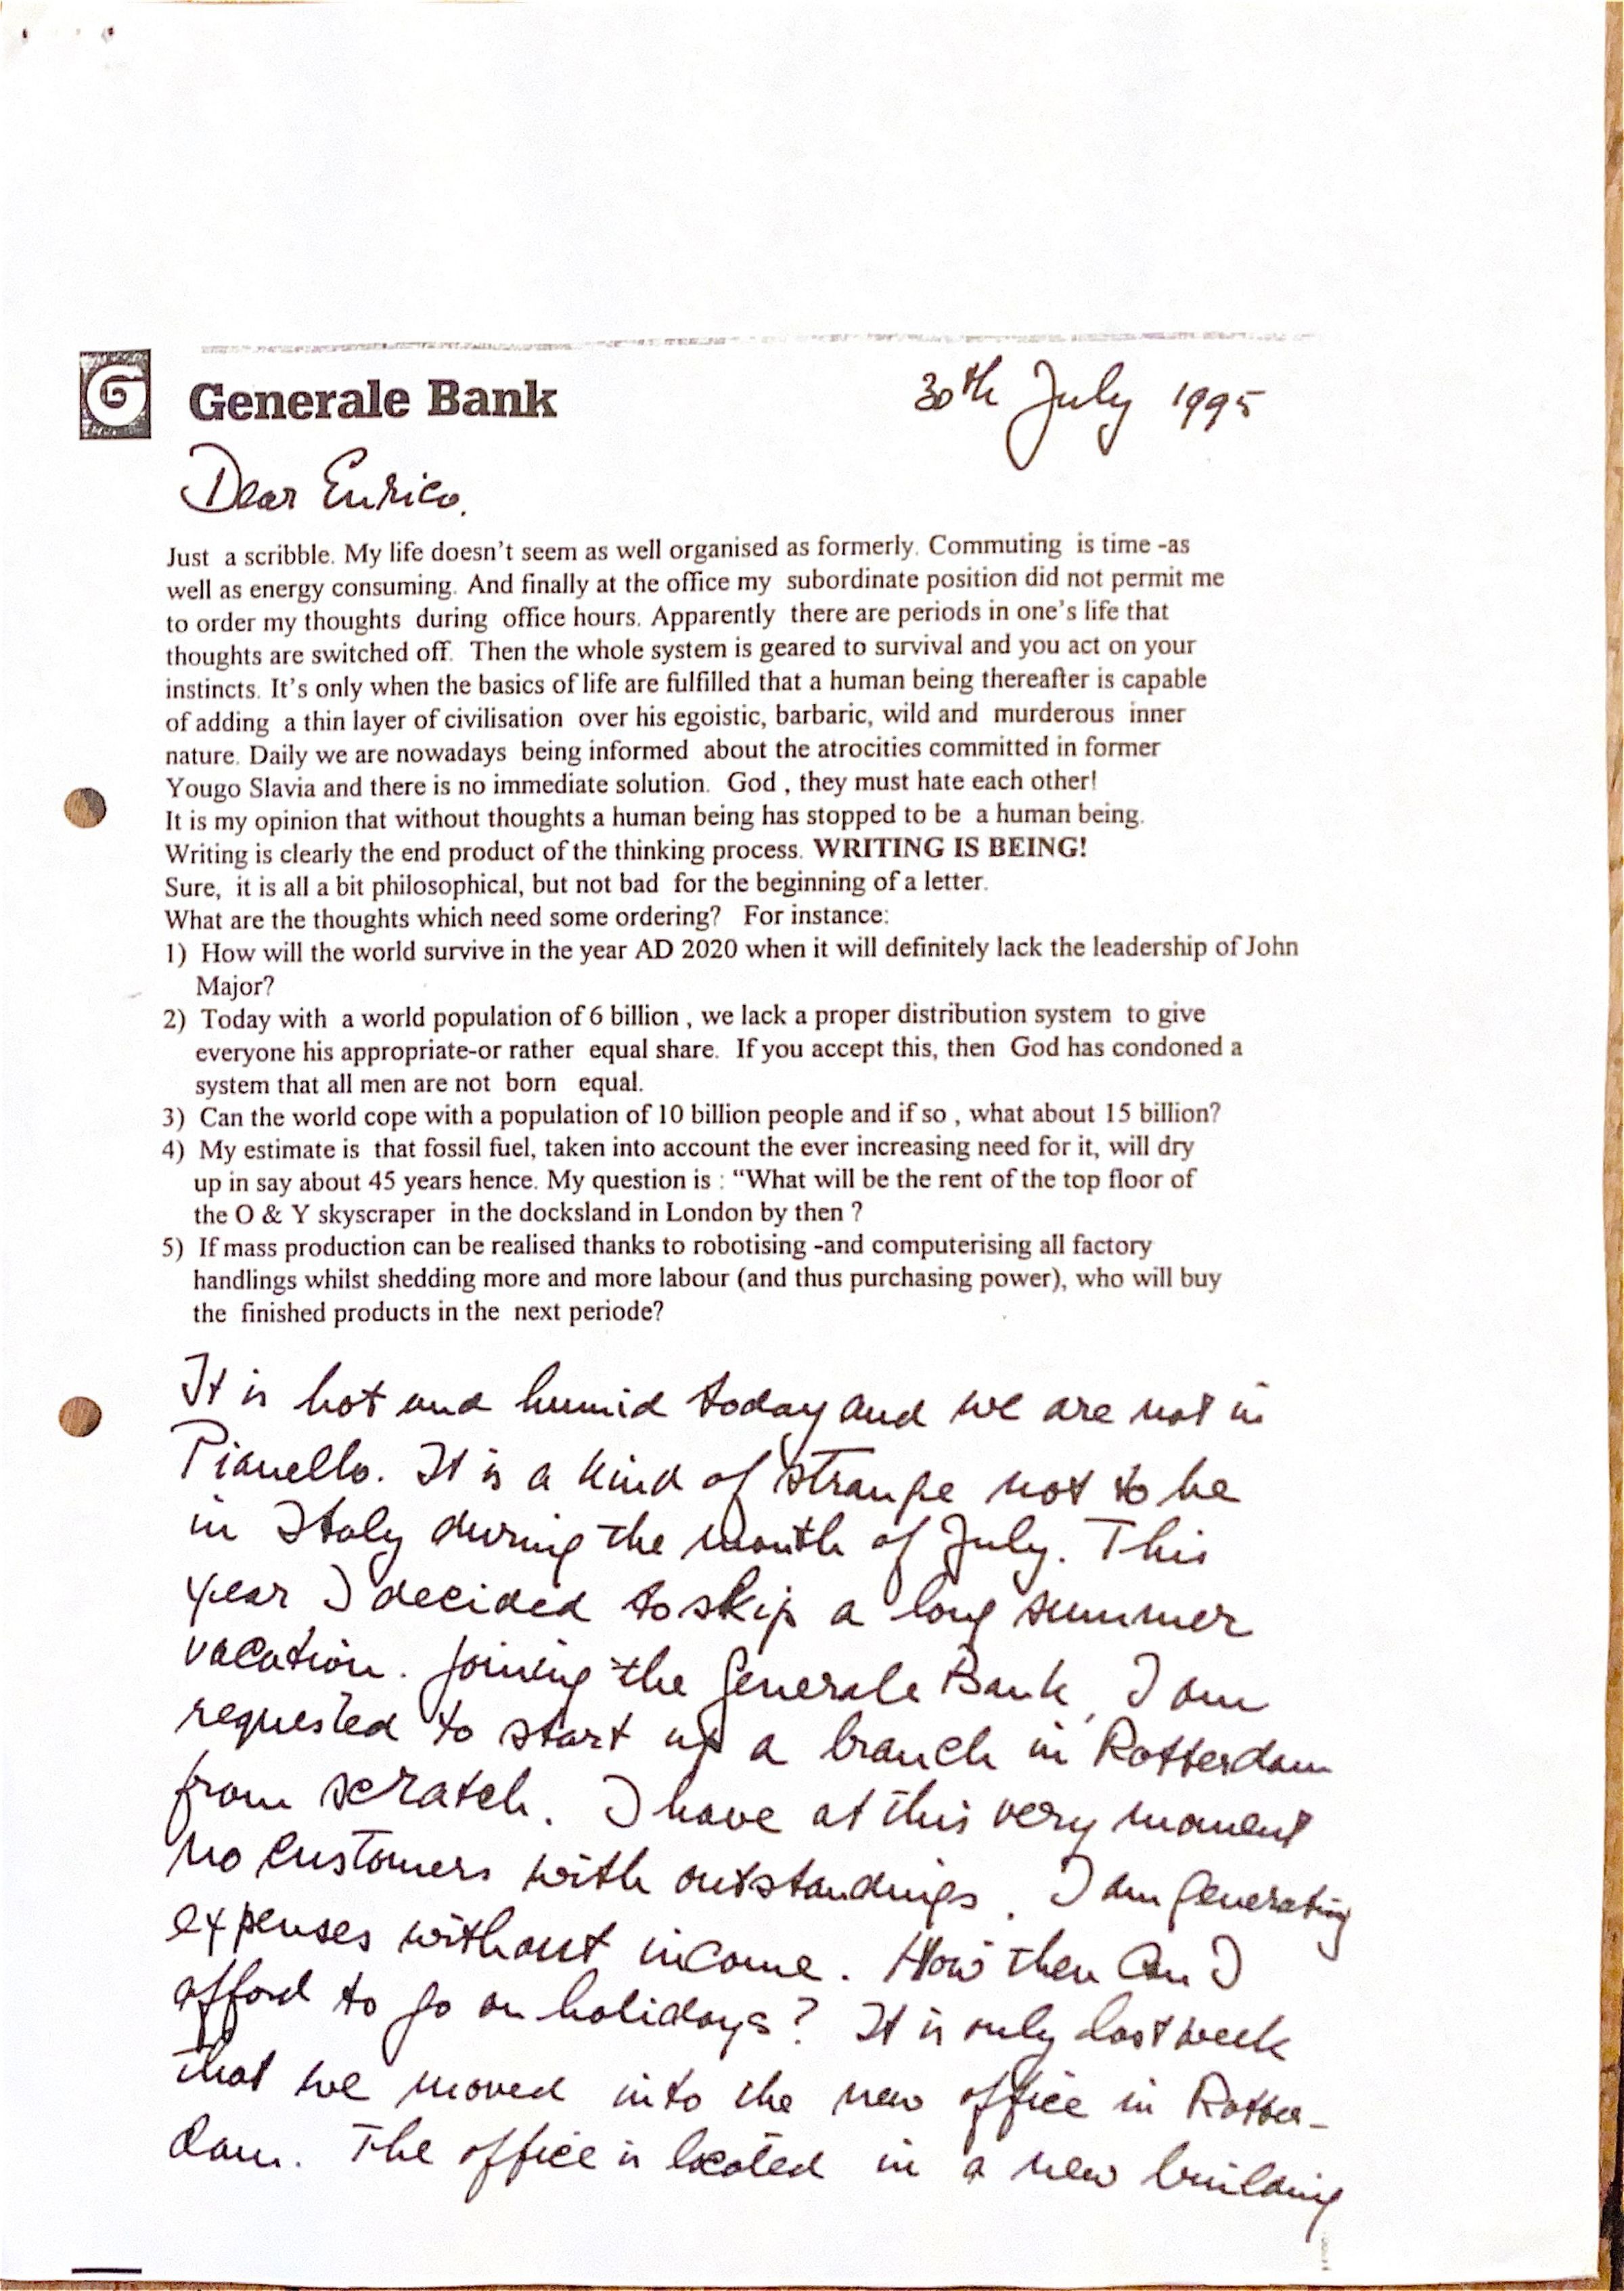 Generale Bank
30th July 1995
Dear Enrico,
Just a scribble. My life doesn't seem as well organised as formerly. Commuting is time -as
well as energy consuming. And finally at the office my subordinate position did not permit me
to order my thoughts during office hours. Apparently there are periods in one's life that
thoughts are switched off. Then the whole system is geared to survival and you act on your
instincts. It's only when the basics of life are fulfilled that a human being thereafter is capable
of adding a thin layer of civilisation over his egoistic, barbaric, wild and murderous inner
nature. Daily we are nowadays being informed about the atrocities committed in former
Yougo Slavia and there is no immediate solution. God , they must hate each other!
It is my opinion that without thoughts a human being has stopped to be a human being.
Writing is clearly the end product of the thinking process. WRITING IS BEING!
Sure, it is all a bit philosophical, but not bad for the beginning of a letter.
What are the thoughts which need some ordering? For instance:
1) How will the world survive in the year AD 2020 when it will definitely lack the leadership of John
Major?
2) Today with a world population of 6 billion , we lack a proper distribution system to give
everyone his appropriate-or rather equal share. If you accept this, then God has condoned a
system that all men are not born equal.
3) Can the world cope with a population of 10 billion people and if so , what about 15 billion?
4) My estimate is that fossil fuel, taken into account the ever increasing need for it, will dry
up in say about 45 years hence. My question is : “What will be the rent of the top floor of
the O & Y skyscraper in the docksland in London by then ?
5) If mass production can be realised thanks to robotising -and computerising all factory
handlings whilst shedding more and more labour (and thus purchasing power), who will buy
the finished products in the next periode?
It is hot and humid today and we are not in
Pianello. It is a kind of strange not to be
in Italy during the month of July. This
year I decided to skip a long summer
vacation. Joining the Generale Bank, I am
requested to start up a branch in Rotterdam
from scratch. I have at this very moment
no customers with outstandings. I am generating
expenses without income. How then can I
afford to go on holidays? It is only last week
that we moved into the new office in Rotter-
dam. The office is located in a new building